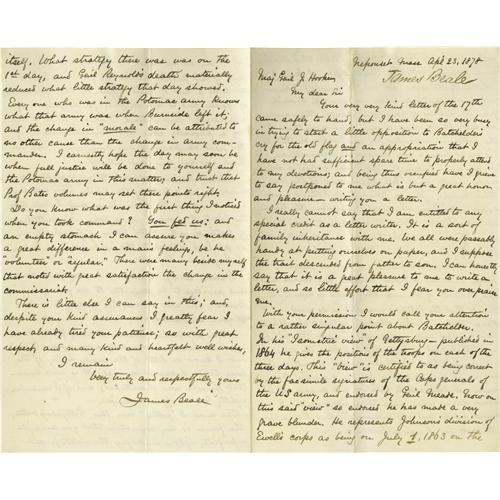 Neponset Mass Apl 23, 1878
James Beale
Maj Genl J. Hooker
My dear sir
Your very very kind letter of the 17th
came safely to hand, but I have been so very busy
in trying to start a little opposition to Batchelder's
cry for the old flag and an appropriation that I
have not had sufficient spare time to properly attend
to my devotions; and being thus occupied have I grieve
to say postponed to me what is but a great honor
and pleasure - writing you a letter.
I really cannot say that I am entitled to any
special credit as a letter writer. It is a sort of
family inheritance with me. We all were passably
handy at putting ourselves on paper, and I suppose
the trait descended from father to son. I can honestly
say that it is a great pleasure to me to write a
letter, and so little effort that I fear you over praise
me.
With your permission I would call your attention
to a rather singular point about Batchelder.
In his "Isometric view of Gettysburg" published in
1864 he gives the positions of the troops on each of the
three days. This "view" is certified to as being correct
by the facsimile signatures of the Corps generals of
the US army, and endorsed by Genl Meade. Now on
this said "view" so endorsed he has made a very
grave blunder. He represents Johnson's division of
Ewell's corps as being on July 1, 1863 on the
itself. What strategy there was was on the
1st day, and Genl Reynold's death materially
reduced what little strategy that day showed.
Every one who was in the Potomac Army knows
what that army was when Burnside left it;
and the change in "morale" can be attributed to
no other cause than the change in army com-
manders. I earnestly hope the day may soon be
when full justice will be done to yourself and
the Potomac army in this matter; and trust that
Prof Bates volumes may set these points right.
Do you know what was the first thing I noticed
when you took command? You fed us; and
an empty stomach I can assure you makes
a great difference in a man's feelings, be he
volunteer or "regular." There were many beside myself
that noted with great satisfaction the change in the
commissariat.
There is little else I can say in this; and
despite your kind assurances I greatly fear I
have already tired your patience; so with great
respect and many kind and heartfelt well wishes,
I remain
Very truly and respectfully yours
James Beale